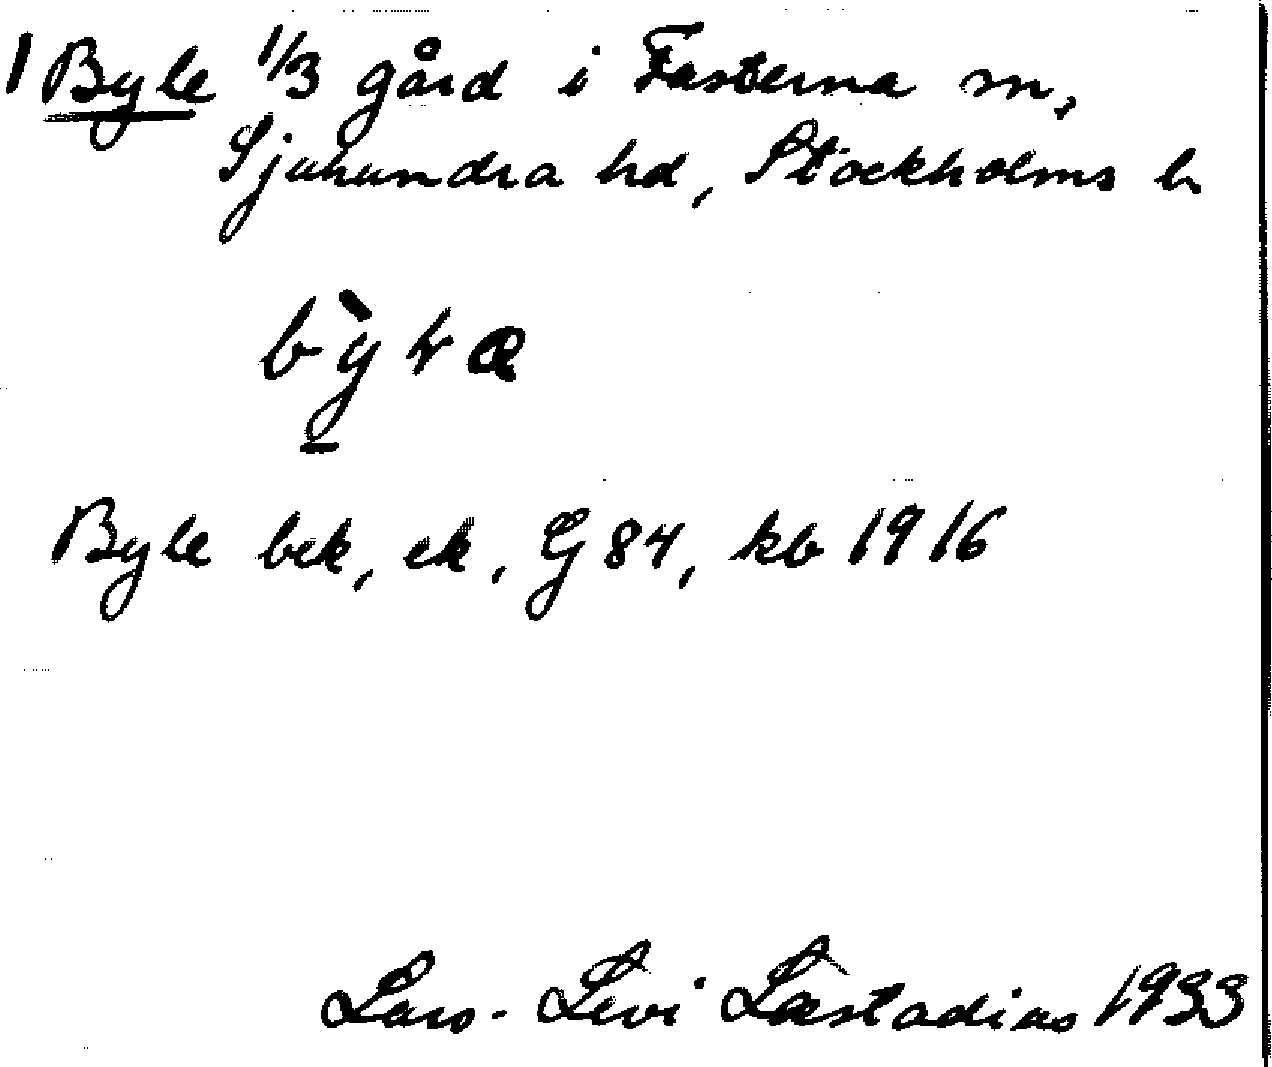 1 Byle 1/3 gård i Fasterna sn,
Sjuhundra hd, Stockholms l.
Byle bek, ek, G 84, kb 1916
Lars-Levi Læstadius 1933